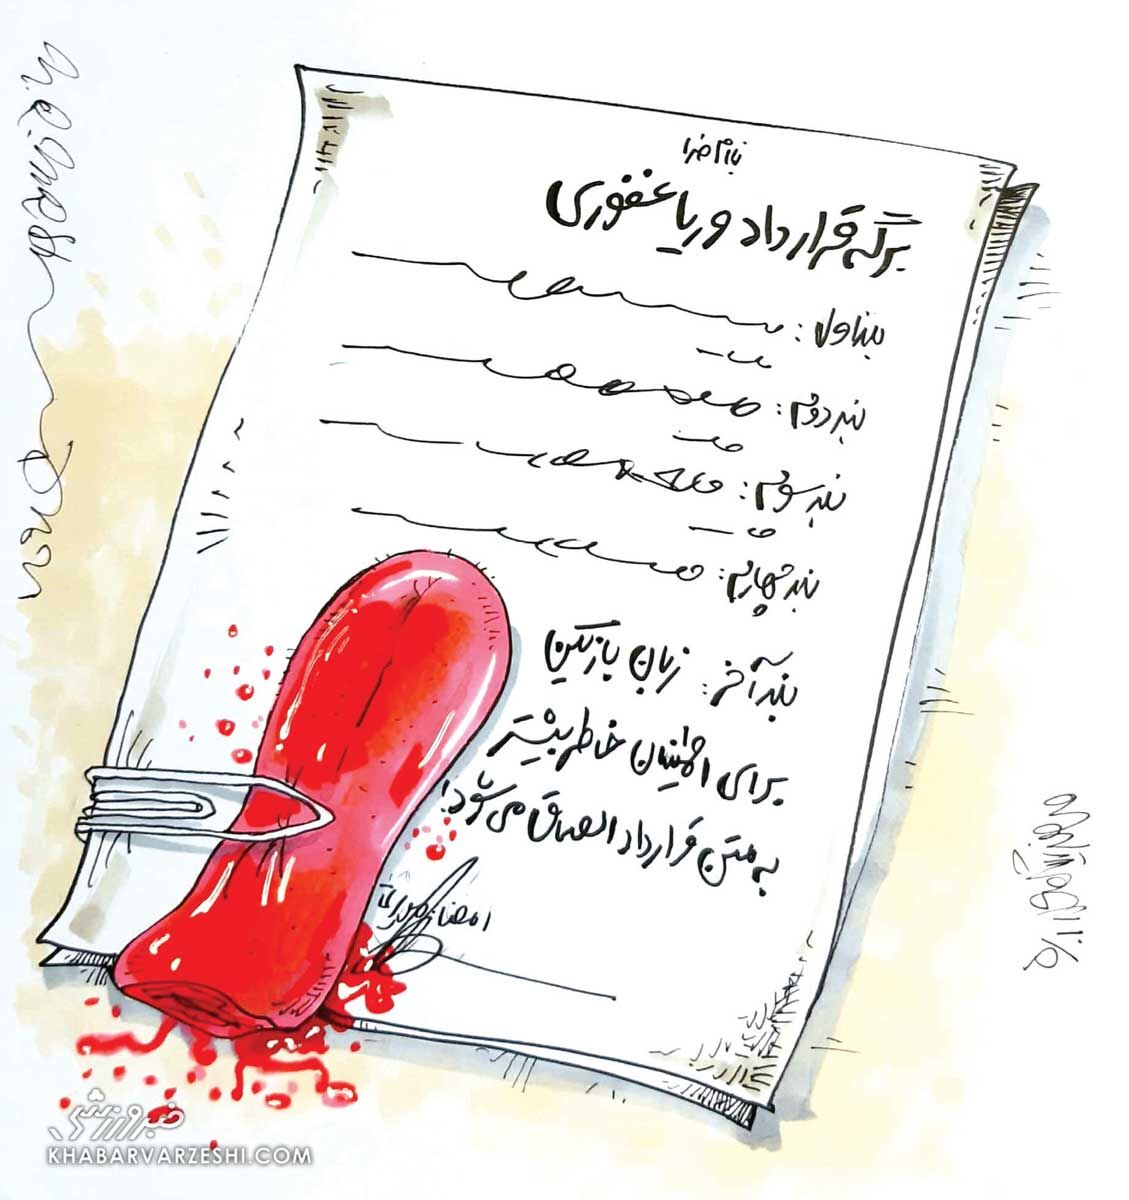 بنام خدا
برگه قرارداد وریا غفوری
بند اول:
بند دوم:
بند سوم:
بند چهارم:
بند آخر: زبان بازیکن
برای اطمینان خاطر بیشتر
به متن قرارداد الصاق می‌شود!
امضا
خبرورزشی
KHABARVARZESHI.COM